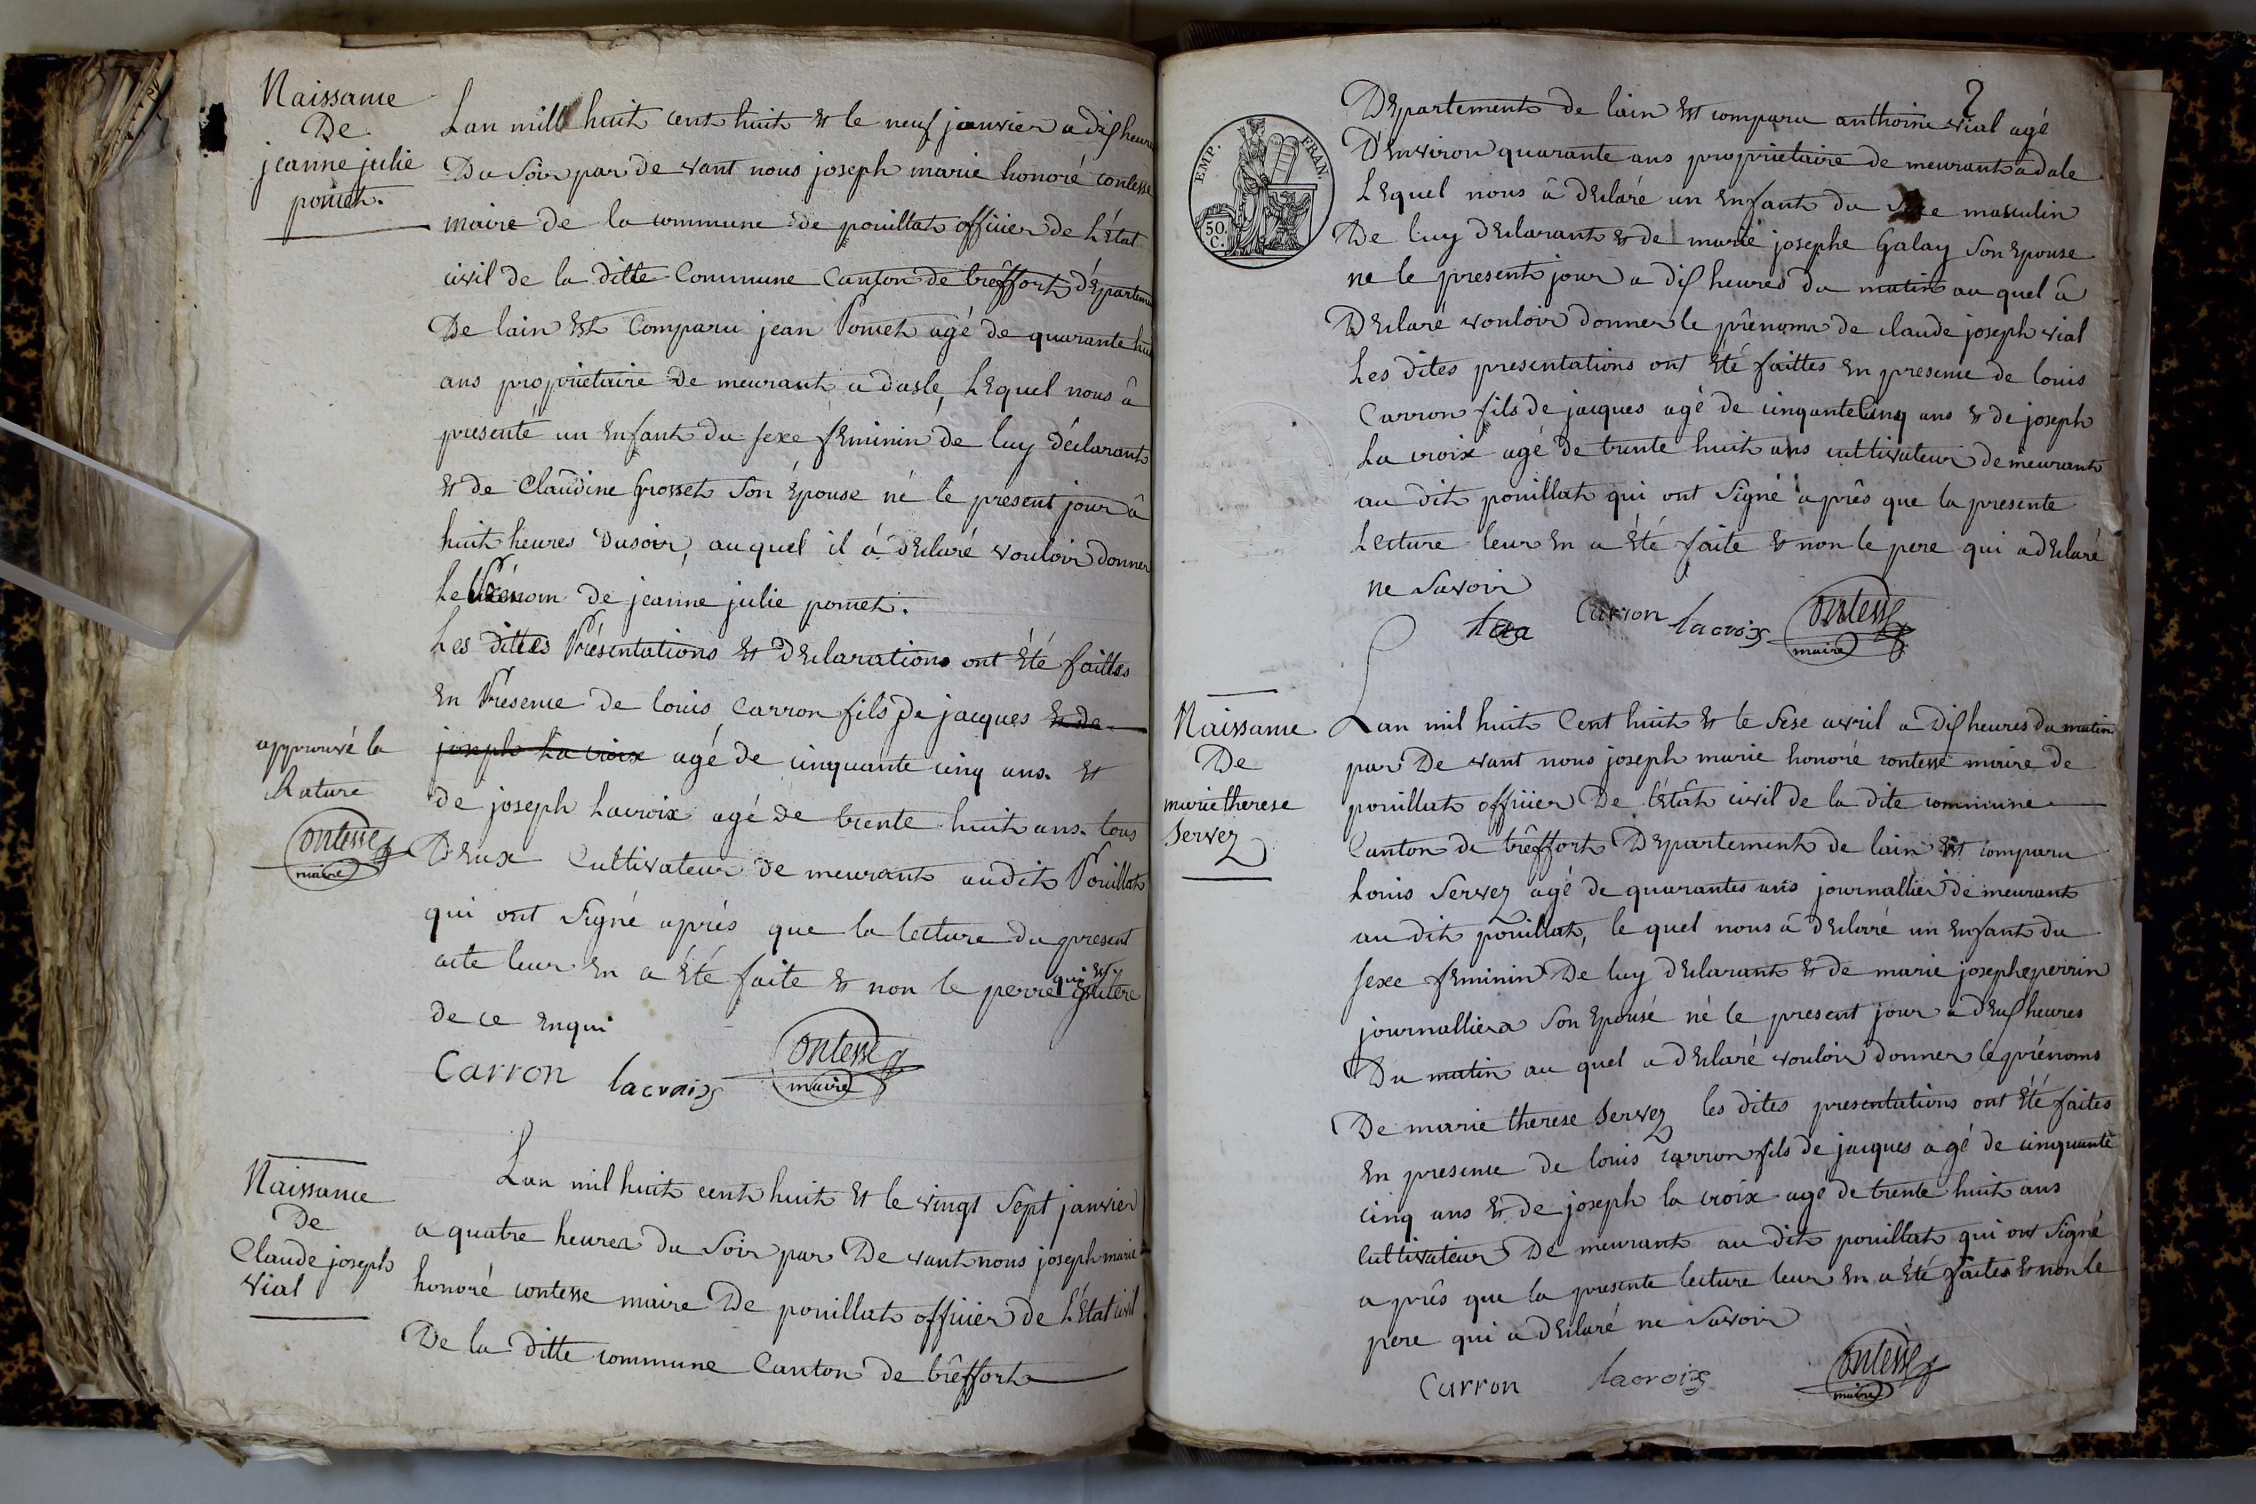 Naissance
De
jeanne julie
pomet.
Lan mill huit cent huit et le neuf janvier a dix heures
Du soir par de vant nous joseph marie honoré contesse
maire de la commune de pouillat officier de L'État
civil de la ditte Commune Canton de trêffort départeme
De lain Est Comparu jean Pomet agé de quarante hui
ans propriétaire de meurant a dasle, LEquel nous â
présenté un Enfant du sexe fEminin de luy déclarant
et de Claudine Grosset son Épouse né le present jour â
huit heures du soir, au quel il á dEclaré vouloir donner
le Prénom de jeanne julie pomet.
Les dittes Présentations Et dEclarations ont Été faittes
En Presence de louis Carron fils de jacques et de
joseph La croix agé de cinquante cinq ans. et
de joseph Lacroix agé de trente huit ans. tous
DEux Cultivateur de meurant audit Pouillat
qui ont signé aprés que la lecture du present
acte leur En a Été faite et non le perre qui Est
de ce Enqui
approuvé la
Rature
Contesse
maire
Carron lacroix Contesse
maire
Naissance
De
Claude joseph
vial
Lan mil huit cent huit Et le vingt sept janvier
a quatre heures du soir par De vant nous joseph marie
honoré contesse maire De pouillat officier de L'État civil
De la ditte commune Canton de trêffort
2
EMP. FRAN.
50.
C.
DEpartement de lain Est comparu anthoine vial agé
D'Environ quarante ans proprietaire de meurant a dale
LEquel nous â dEclaré un Enfant du sexe masculin
De luy dEclarant et de marie josephe Galay son Epouse
ne le present jour a dix heures du matin au quel â
DEclaré vouloir donner le prênoms de claude joseph vial
Les dites presentations ont Été faittes En presence de louis
Carron fils de jacques agé de cinquante cinq ans et de joseph
La croix agé de trente huit ans cultivateur de meurant
au dit pouillat qui ont signé aprês que la presente
Lecture leur En a Été faite et non le pere qui a dEclaré
ne savoir
Carron lacroix Contesse
maire
Naissance
De
marie therese
Servez
Lan mil huit Cent huit Et le sese avril a dix heures du matin
par De vant nous joseph marie honoré contesse maire de
pouillat officier De l'État civil de la dite commune
Canton de trêffort DEpartement de lain Est comparu
Louis Servez agé de quarantes ans journallier de meurant
au dit pouillat, le quel nous â dEclaré un Enfant du
sexe fEminin De luy dEclarant et de marie josephe perrin
journalliera son Epousé né le present jour a dEux heures
Du matin au quel a dEclaré vouloir donner le prénoms
De marie therese Servez les dites presentations ont Été faites
En presence de louis carron fils de jacques agé de cinquante
cinq ans et de joseph la croix agé de trente huit ans
Cultivateur De meurant au dit pouillat qui ont signé
a prês que la presente lecture leur En a Été faites et non le
pere qui a dEclaré ne savoir
Carron lacroix Contesse
maire